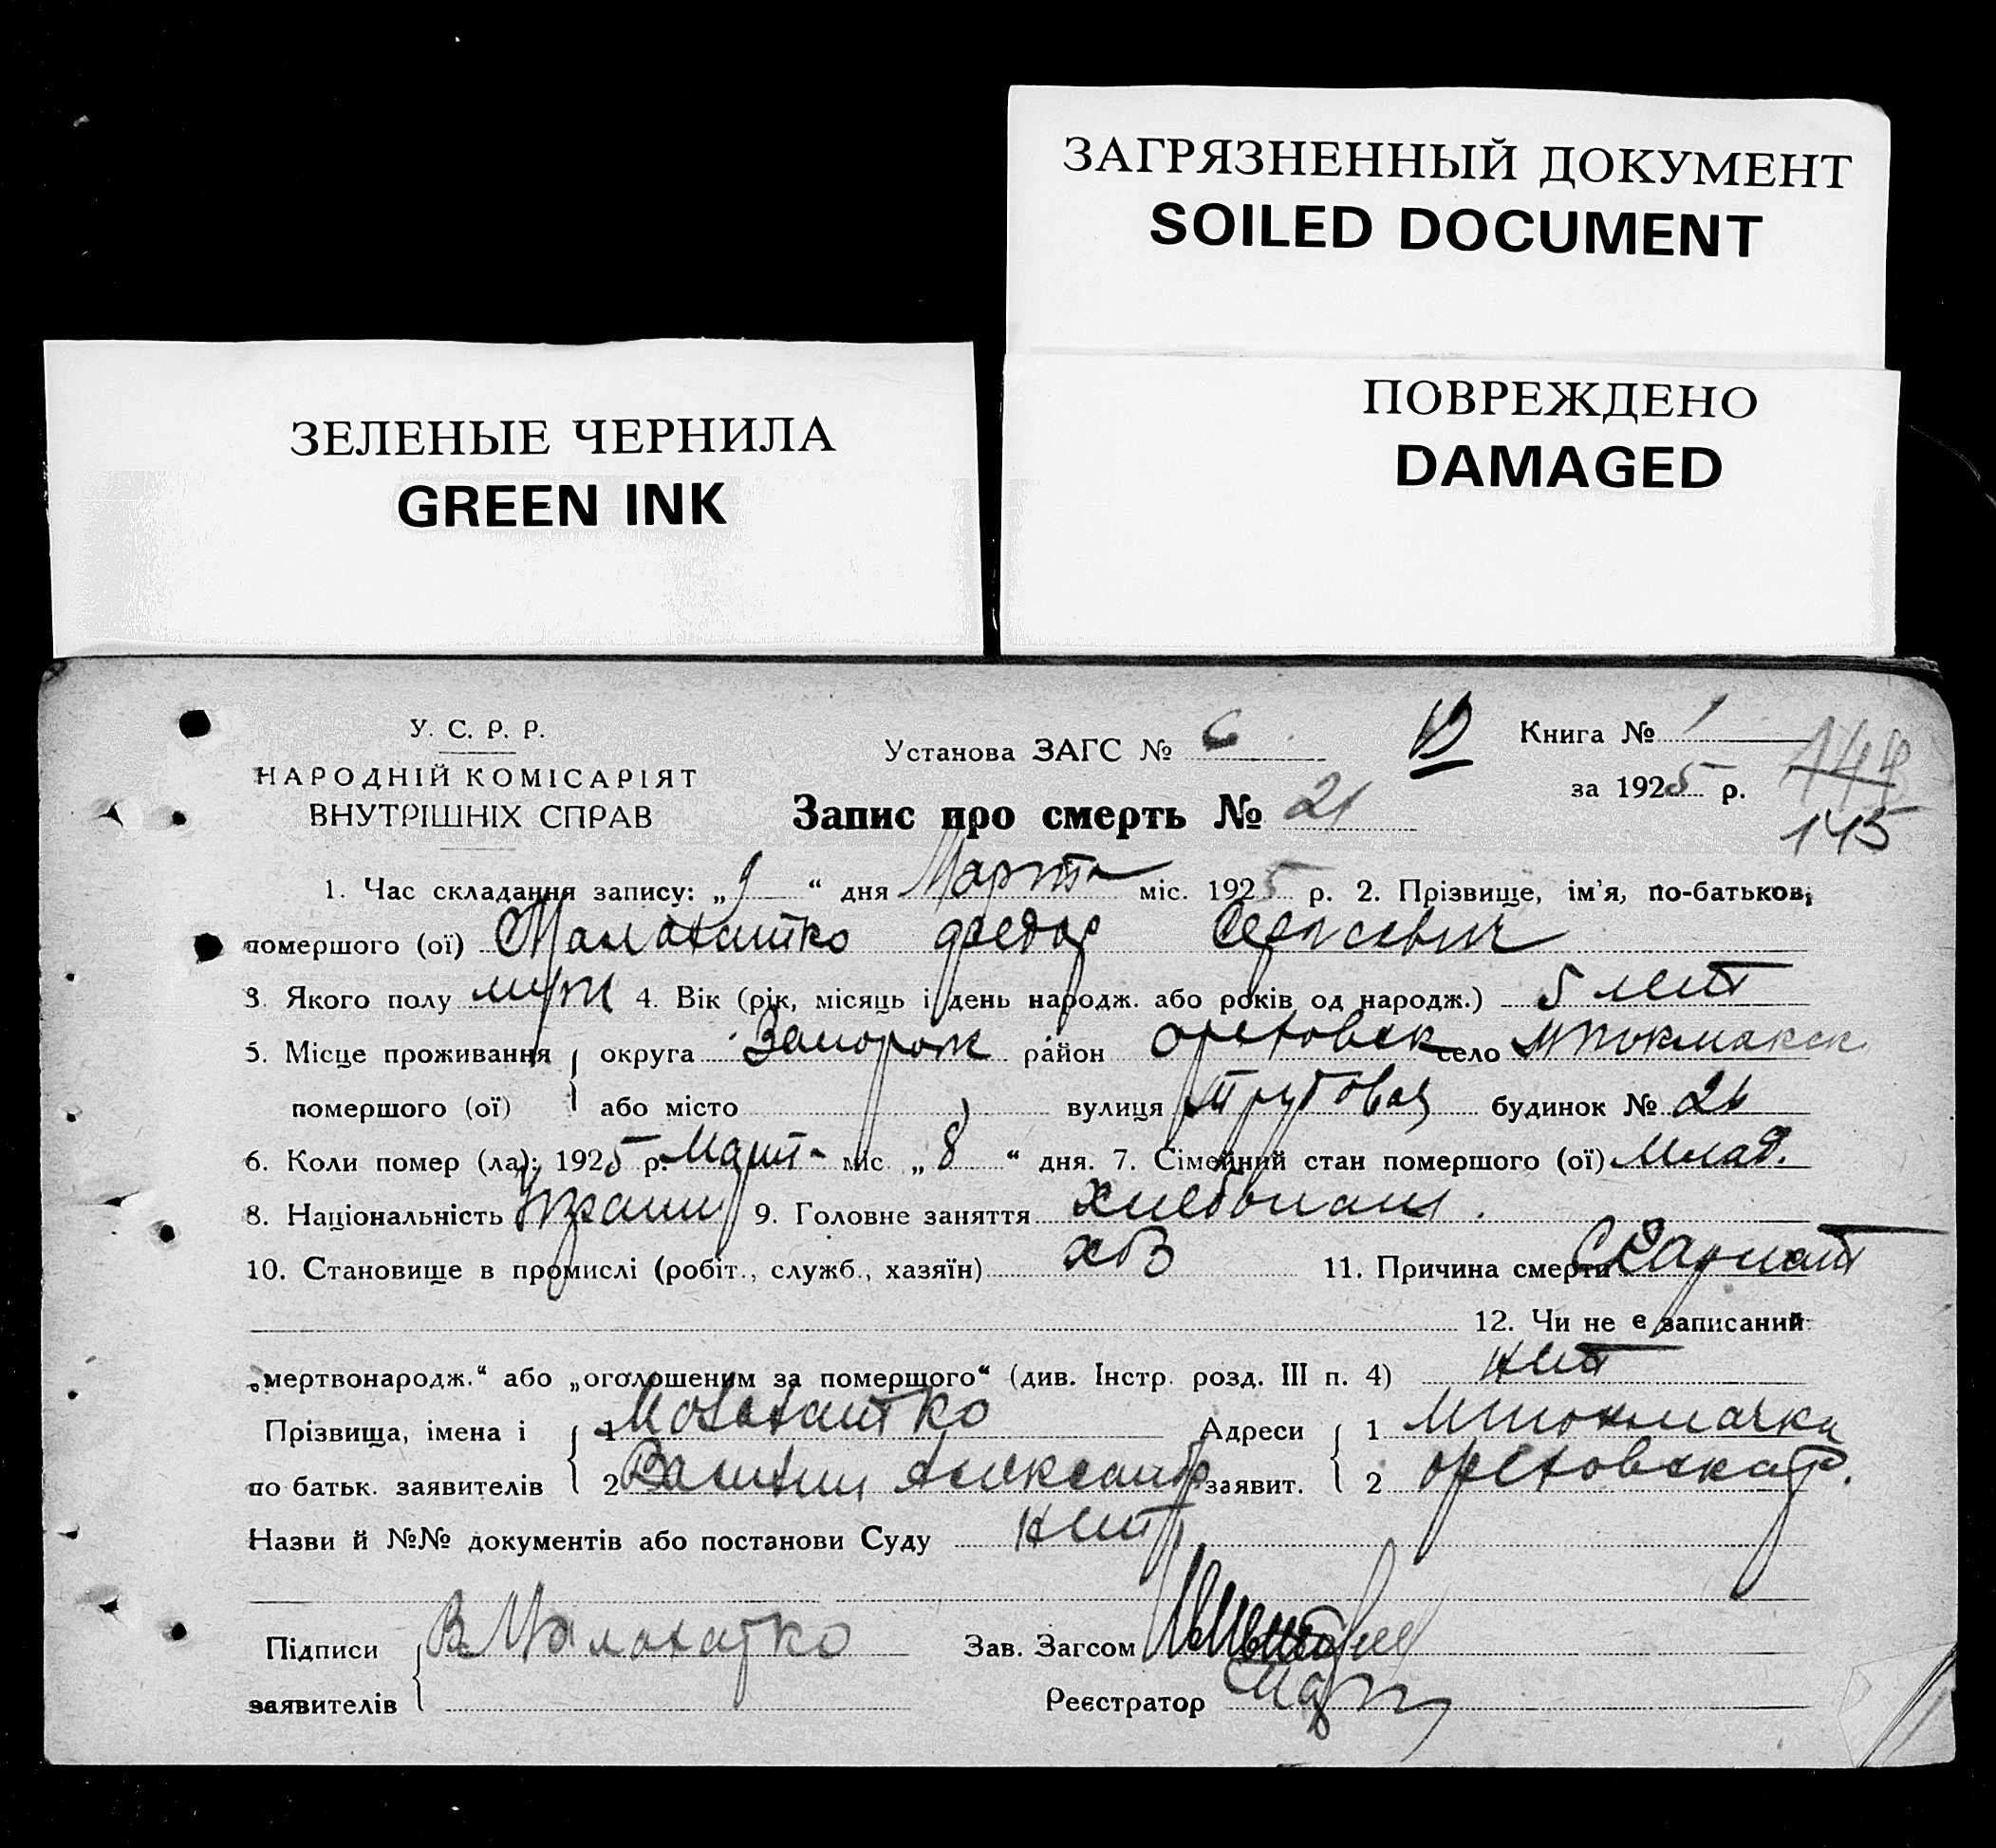 ЗАГРЯЗНЕННЫЙ ДОКУМЕНТ
SOILED DOCUMENT
ЗЕЛЕНЫЕ ЧЕРНИЛА
GREEN INK
ПОВРЕЖДЕНО
DAMAGED
У. С. Р. Р.
НАРОДНІЙ КОМІСАРІЯТ
ВНУТРІШНІХ СПРАВ
Установа ЗАГС № 6
Книга № 1
за 1925 р.
144
145
Запис про смерть № 21
1. Час складання запису: „9“ дня Марта міс. 1925 р. 2. Прізвище, ім'я, по-батькові
помершого (ої) Малохатко Федор Сергеевич
3. Якого полу муж 4. Вік (рік, місяць і день народж. або років од народж.) 5 лет
5. Місце проживання округа Запорож район Ореховск село МТокмакск
помершого (ої) або місто вулиця будинок №
6. Коли помер (ла): 1925 р. Март міс. „8“ дня. 7. Сімейний стан помершого (ої) Млад.
8. Національність Украин 9. Головне заняття Хлебопаш.
10. Становище в промислі (робіт., служб., хазяїн) 11. Причина смерти Скарлат
12. Чи не є записаний
„мертвонародж.“ або „оголошеним за померщого“ (див. Інстр. розд. III п. 4) нет
Прізвища, імена і 1 Молохатко Адреси 1 МТокмачка
по батьк. заявителів 2 Александр заявит. 2 Ореховскаго р.
Назви й №№ документів або постанови Суду нет
Підписи В Малохатко Зав. Загсом
заявителів Реєстратор